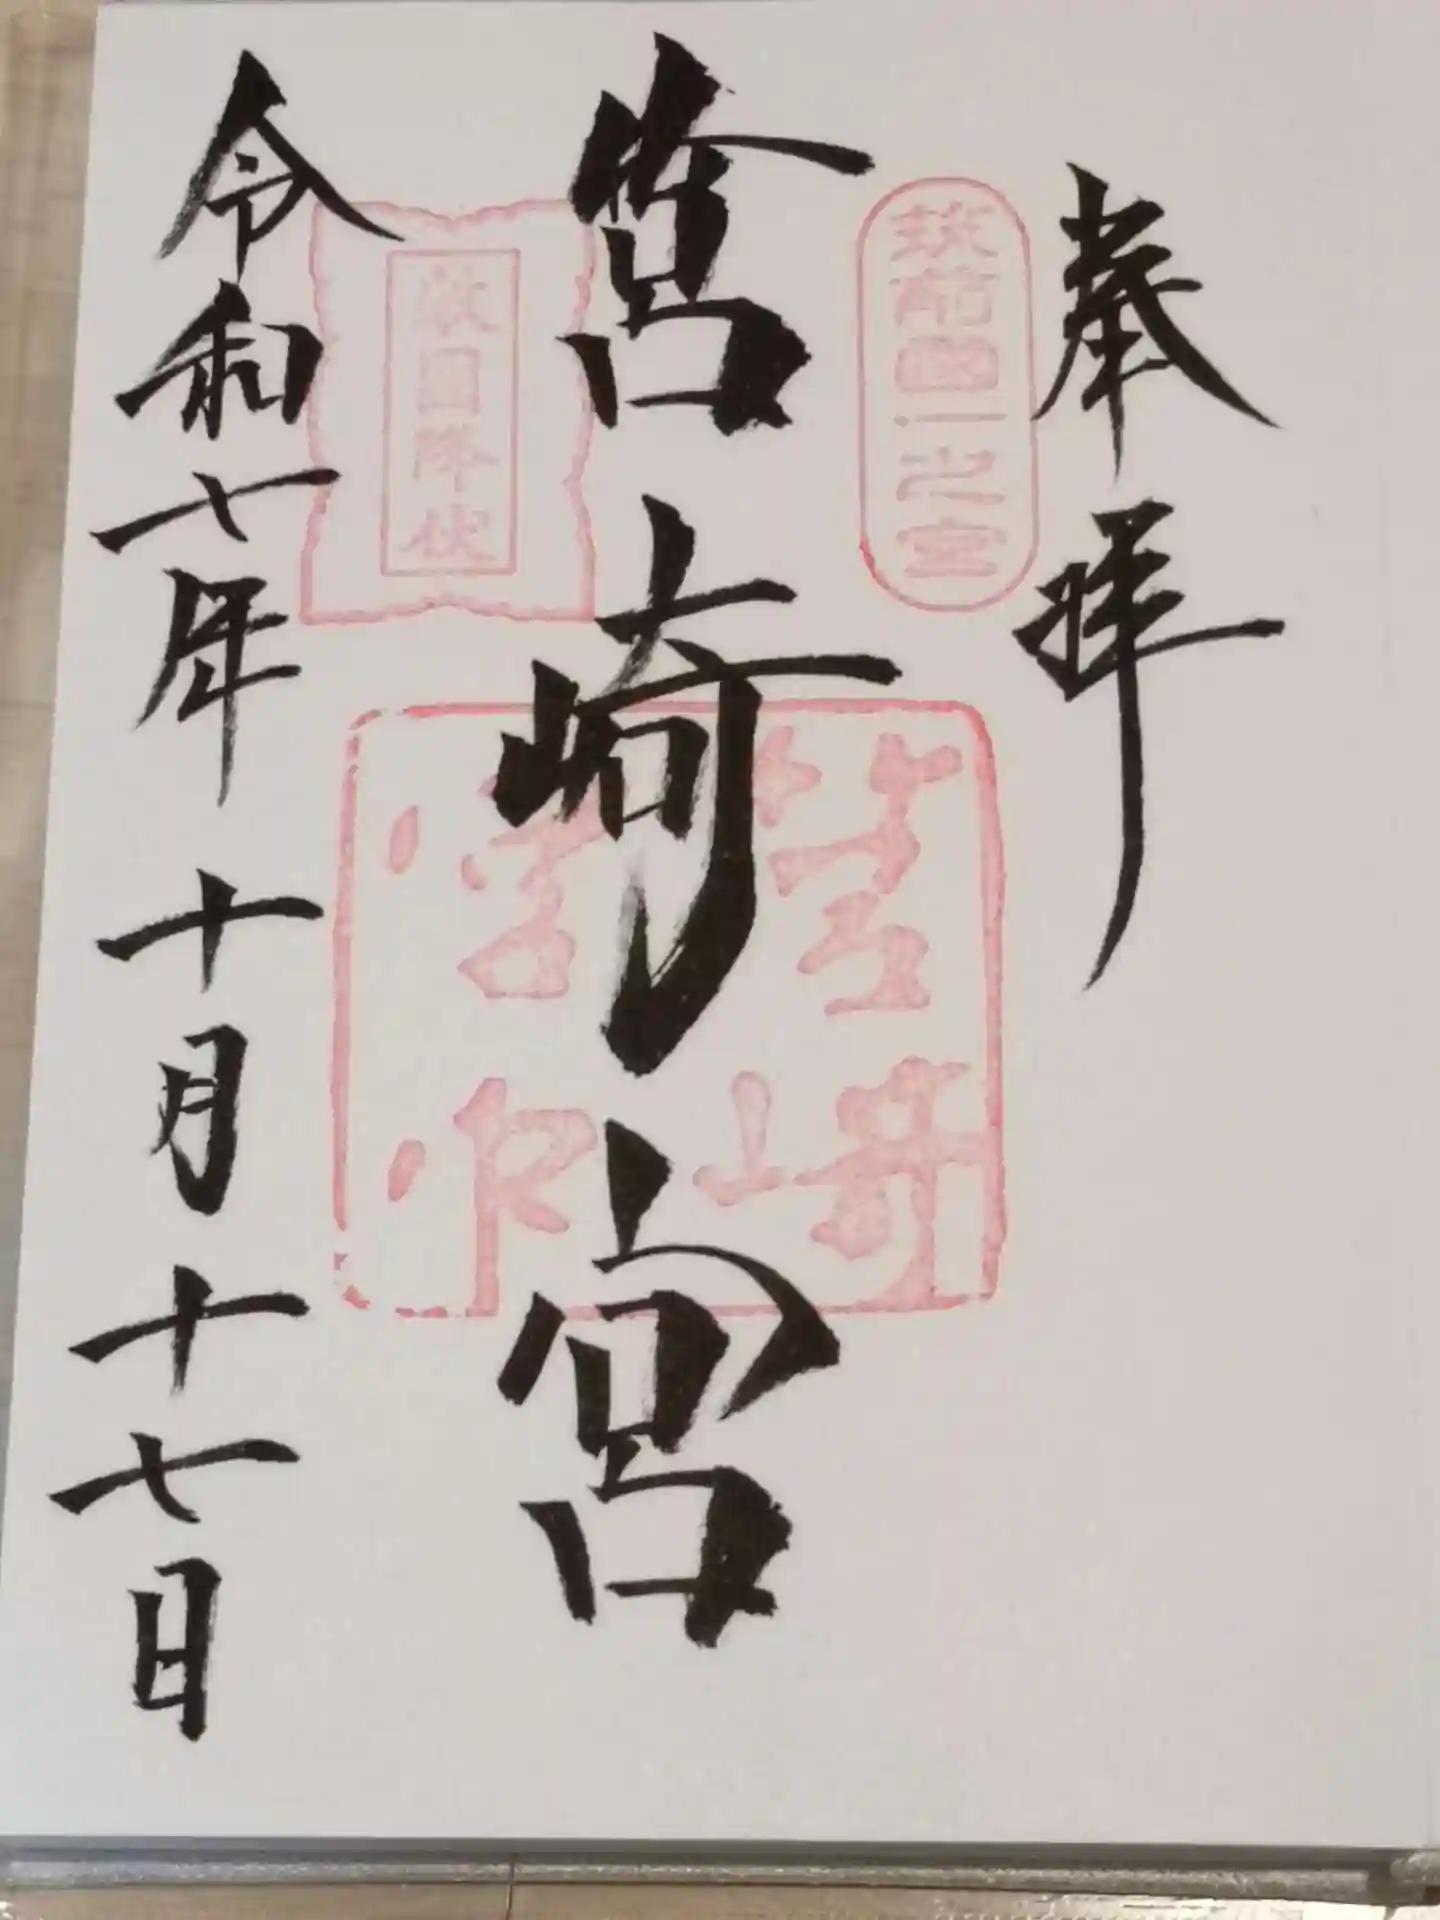 奉拝
筑前國一之宮
筥崎宮
筥崎
宮印
敵國降伏
令和七年十月十七日